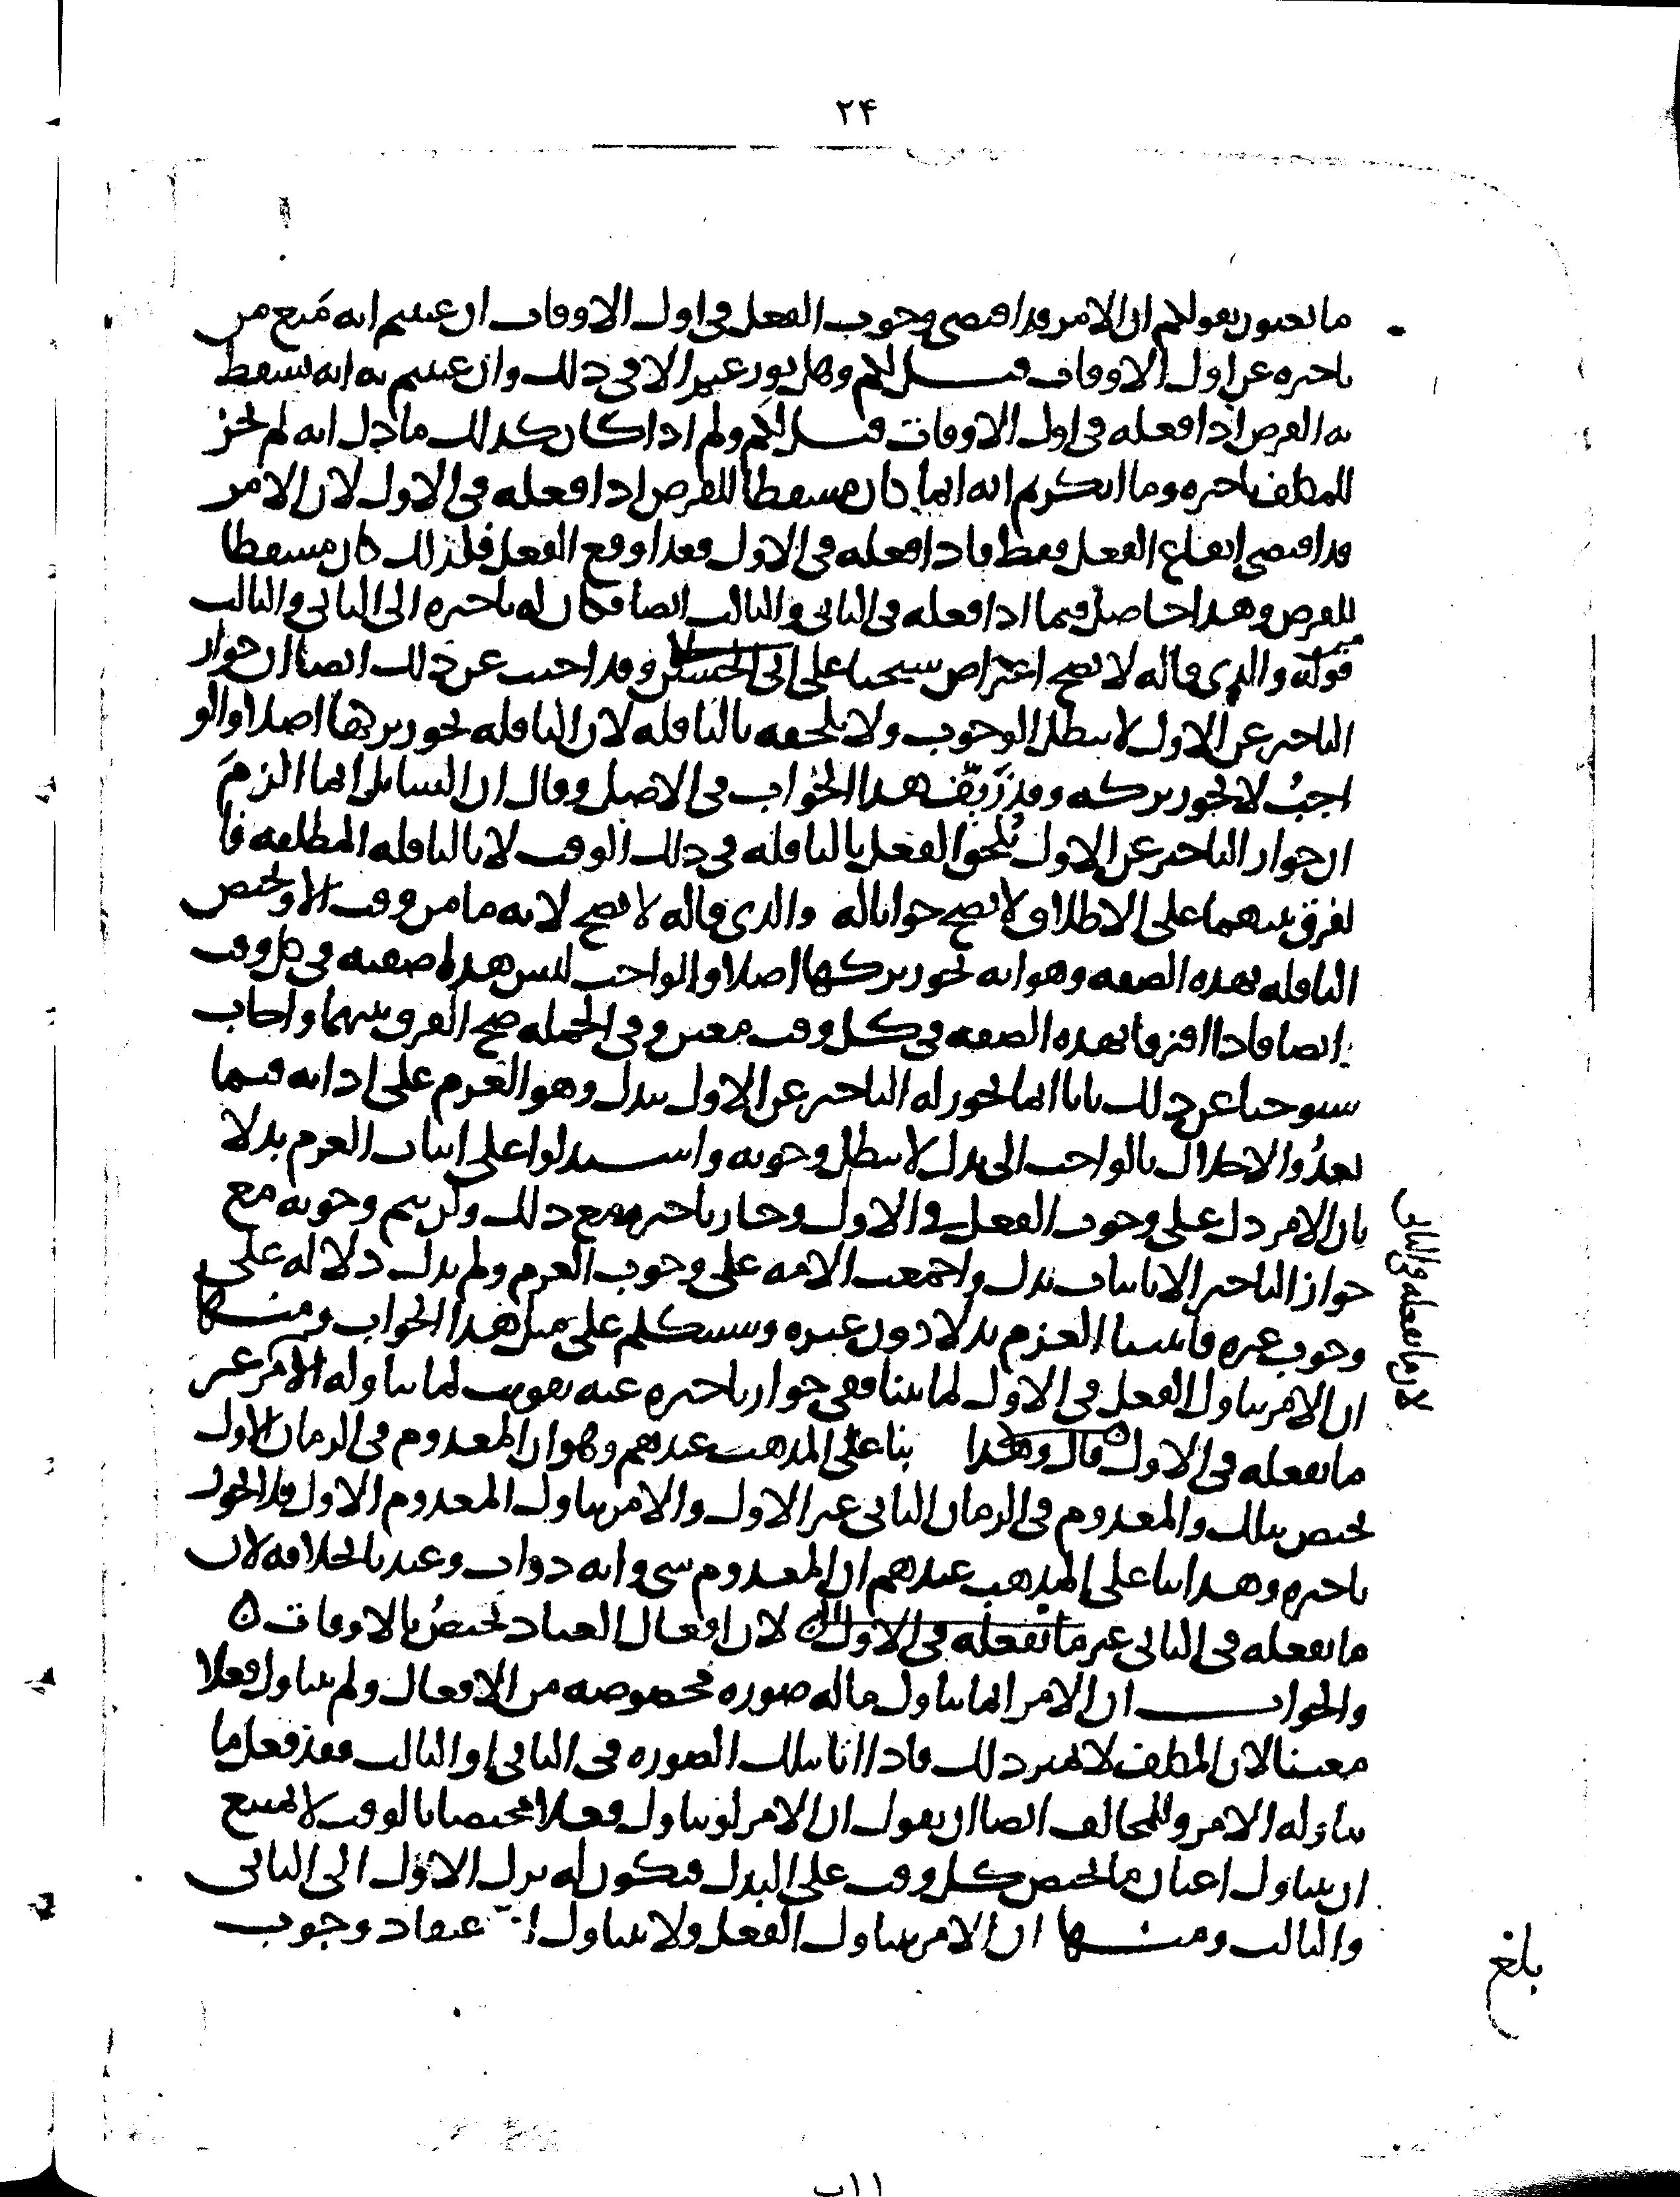 ٢۴
ما تعنون بقولكم ان الامر قد اقتضى وجوب الفعل في اول الاوقات ان عنيتم انه مَنع من
تاخيره عن اول الاوقات قيل لكم وهل نوزعتم الا في ذلك وان عنيتم به انه يسقط
به الفرض اذا فعله في اول الاوقات قيل لكم ولم اذا كان كذلك ما دل انه لم يجز
للمكلف تاخيره وما انكرتم انه انما كان مسقطا للفرض اذا فعله في الاول لان الامر
قد اقتضى ايقاع الفعل فقط فاذا فعله في الاول فقد اوقع الفعل فلذلك كان مسقطا
للفرض وهذا حاصل فيما اذا فعله في الثاني والثالث ايضا فكان له تاخيره الى الثاني والثالث
قوله والذي قاله لا يصح اعتراض شيخنا على ابي الحسين وقد اجيب عن ذلك ايضا ان جواز
التاخير عن الاول لا يبطل الوجوب ولا يلحقه بالنافلة لان النافلة يجوز تركها اصلا والو
اجبُ لا يجوز تركه وقد زَيّف هذا الجواب في الاصل وقال ان السايل انما الزمَ
ان جواز التاخير عن الاول يُلحق الفعل بالنافلة في ذلك الوقت لا بالنافلة المطلقة فا
لفرق بينهما على الاطلاق لا يصح جوابا له والذي قاله لا يصح لانه ما من وقت الا ويختص
النافلة بهذه الصفة وهو انه يجوز تركها اصلا والواجب ليس هذه صفته في كل وقت
ايضا فاذا افترقا بهذه الصفة في كل وقت معين وفي الجملة صح الفرق بينهما واجاب
شيوخنا عن ذلك بانا انما يجوز له التاخير عن الاول ببدل وهو العزم على ادايه فيما
بعدُ والاخلال بالواجب الى بدل لا يبطل وجوبه واستدلوا على اثبات العزم بدلا
بان الامر دل على وجوب الفعل في الاول وجاز تاخيره مع ذلك ولن يتم وجوبه مع
جواز التاخير الا باثبات بدل واجمعت الامة على وجوب العزم ولم يدل دلالة على
وجوب غيره فاثبتنا العزم بدلا دون غيره وسنتكلم على مثل هذا الجواب ومنها
ان الامر يتناول الفعل في الاول لما بينا ففي جواز تاخيره عنه تفويت لما تناوله الامر
ما يفعله في الاول قال وهذا بنا على المذهب عندهم وهو ان المعدوم في الزمان الاول
يختص بذلك والمعدوم في الزمان الثاني غير الاول والامر يتناول المعدوم الاول فلا يجوز
تاخيره وهذا بنا على المذهب عندهم ان المعدوم شي وانه ذوات وعندنا بخلافه لان
ما يفعله في الثاني غير ما يفعله في الاول لان افعال العباد تختصُ بالاوقات ٥
والجواب ان الامر انما يتناول ما له صورة مخصوصة من الافعال ولم يتناول فعلا
معينا لان المكلف لا يميز ذلك فاذا اتا بتلك الصورة في الثاني او الثالث فقد فعل ما
تناوله الامر وللمخالف ايضا ان يقول ان الامر لو تناول فعلا مختصا بالوقت لا يمتنع
ان يتناول اعيان ما يختص كل وقت على البدل فيكون له ترك الاول الى الثاني
والثالث ومنها ان الامر يتناول الفعل ولا يتناول اعتقاد وجوب
لان ما يفعله في الثاني
بلغ
١١ب